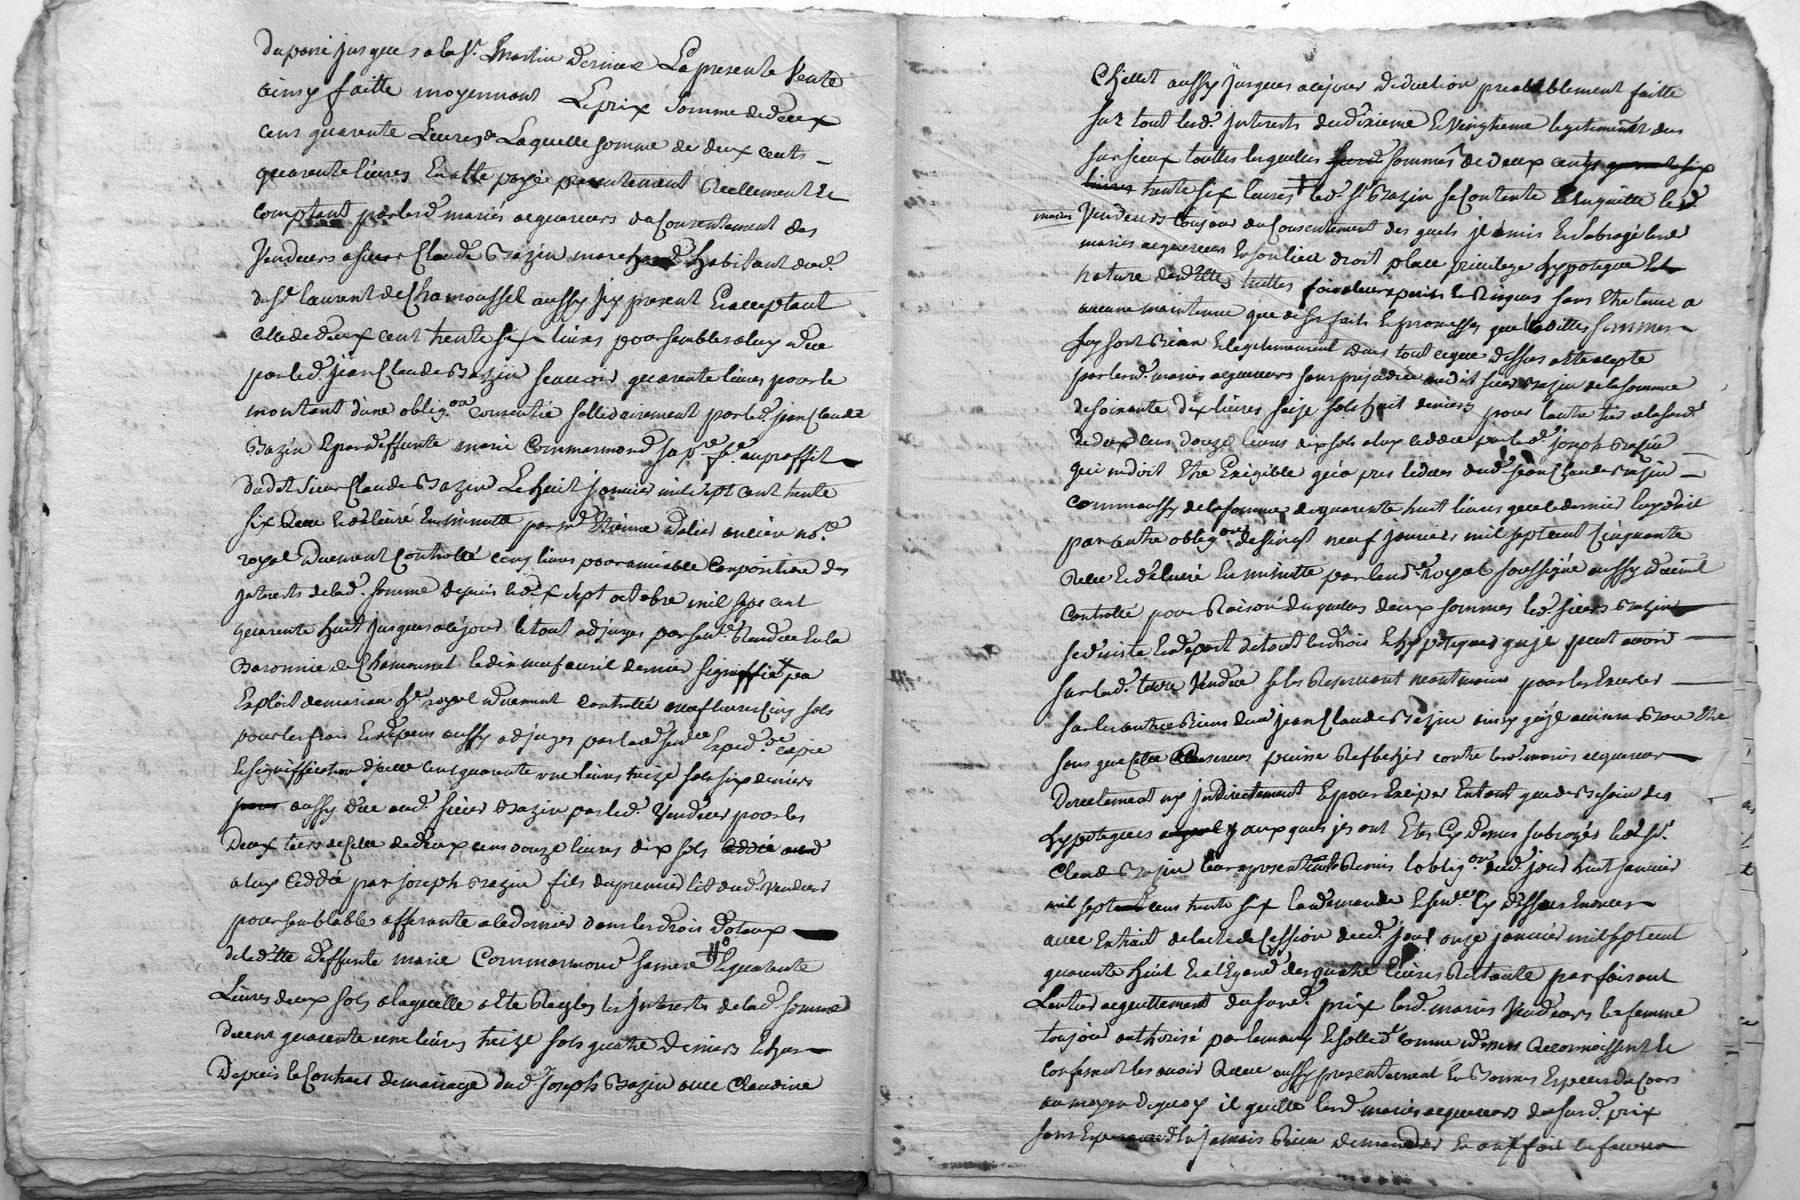 du passé jusques a la St. Martin derniere La presente Vente
ainsy faitte moyennant Le prix Somme de deux
cens quarente Livres de Laquelle somme de deux cents
quarente livres En a Ete payé presentement Reellement et
comptant par lesd. mariés acquereurs du Consentement des
Vendeurs a sieur Claude Bazin marchand habitant dud.
de St. laurent de Chamousset aussy jcy present Et acceptant
Celle de deux cent trente six livres pour semblable a luy düe
par led. jean Claude Bazin scavoir quarente livres pour le
montant d'une oblig.on Consentie sollidairement par led. jean Claude
Bazin Et par deffunte marie Commarmond sa p.re fe. au proffit
dudit Sieur Claude Bazin Le huit janvier mil sept cent trente
six Receu Et delivré En minutte par me. Etienne ancien no.re
royal duement Controllé cinq livres pour amiable Composition des
jnterests de lad. somme depuis le dix sept octobre mil sept cent
quarente huit jusques a ce jour le tout adjugés par sent.e Rendüe En la
Baronnie de Chamousset le dix neuf avril dernier signiffié par
Exploit de h.r royal duement Controllé neuf livres Cinq sols
pour les frais Et depens aussy adjugés par lad. sent.ce Exped.on Copie
Et signiffication d'jcelle Cent quarente une livres treize sols six deniers
pour aussy düe aud. sieur Bazin par led. Vendeur pour les
Deux tiers de Celle de deux cens douze livres dix sols
a luy Ceddée par joseph Bazin fils du premier lit dud. Vendeur
pour semblable afferante a ce dernier dans les droits dotaux
de laditte deffunte marie Commarmond sa mere Et quarente
Livres deux sols a laquelle a Ete Reglés les jnterests de lad. somme
de cent quarente une livres treize sols quatre deniers Echus
Depuis le Contract de mariage dud. Joseph Bazin avec Claudine
Chillet aussy jusques a ce jour deduction prealablement faitte
sur tout lesd. jnterests du dixieme Et vingtieme legitimement dus
sur jceux touttes lesquelles sommes de deux cents quarente six
livres trente six livres led. sr. Bazin se Contente Et En quitte les d.
mariés Vendeurs toujour du Consentement des quels jl a mis Et subrogé lesd.
mariés acquereurs En son lieu droit place privilege hypoteque Et
nature de dettes a leurs perils Et Risques sans Etre tenu a
aucune maintenue que de ses faits Et promesses que lesdittes sommes
luy sont Bien Et legitimement dües tout ce que dessus a Ete accepté
par lesd. mariés acquereurs sans prejudice audit sieur Bazin de la somme
de soixante dix livres seize sols huit deniers pour l'autre tier de la susd.
de deux cens douze livres dix sols a luy ceddée par led. joseph Bazin
qui ne doit Etre Exigible qu'a pres le deces dud. jean Claude Bazin
comm'aussy de la somme de quarente huit livres que le dernier luy doit
par autre oblig.on de vingt neuf janvier mil sept cent Cinquante
Receu Et delivré En minutte par le no.re royal soussigné aussy duement
Controllé pour Raison desquelles deux sommes led. sieur Bazin
se desiste Et depart de tout les droits Et hypoteques qu'il peut avoir
sur lad. terre Vendüe se les Reservant neantmoins pour les Exercer
sur les autres Biens dud. jean Claude Bazin ainsy qu'il avisera Bon Etre
sans que Cette Reserve puisse Reflechir contre lesd. mariés acquereurs
directement ny jndirectement Et pour Exciper En tant que de Besoin des
hypoteques auxquels jls ont Etes Cy dessus subrogés led. sr.
Claude Bazin leur a presentement Remis l'oblig.on dud. jour huit janvier
mil sept cens trente six la demande Et sent.ce Cy dessus Enoncés
avec Extrait de l'acte de Cession dud. jour onze janvier mil sept cent
quarente huit Et a l'Egard des quatre livres Restante parfaisant
L'entier acquittement du susd. prix lesd. mariés Vendeurs la femme
toujour authorisé par le mary Et sollid.t comme dessus Reconnoissent Et
Confessent les avoir Receu aussy presentement En Bonnes Especes du Cours
au moyen de quoy il quitte lesd. mariés acquereurs du susd. prix
sans Esperance d'En jamais Rien demander Et ont fait En faveur